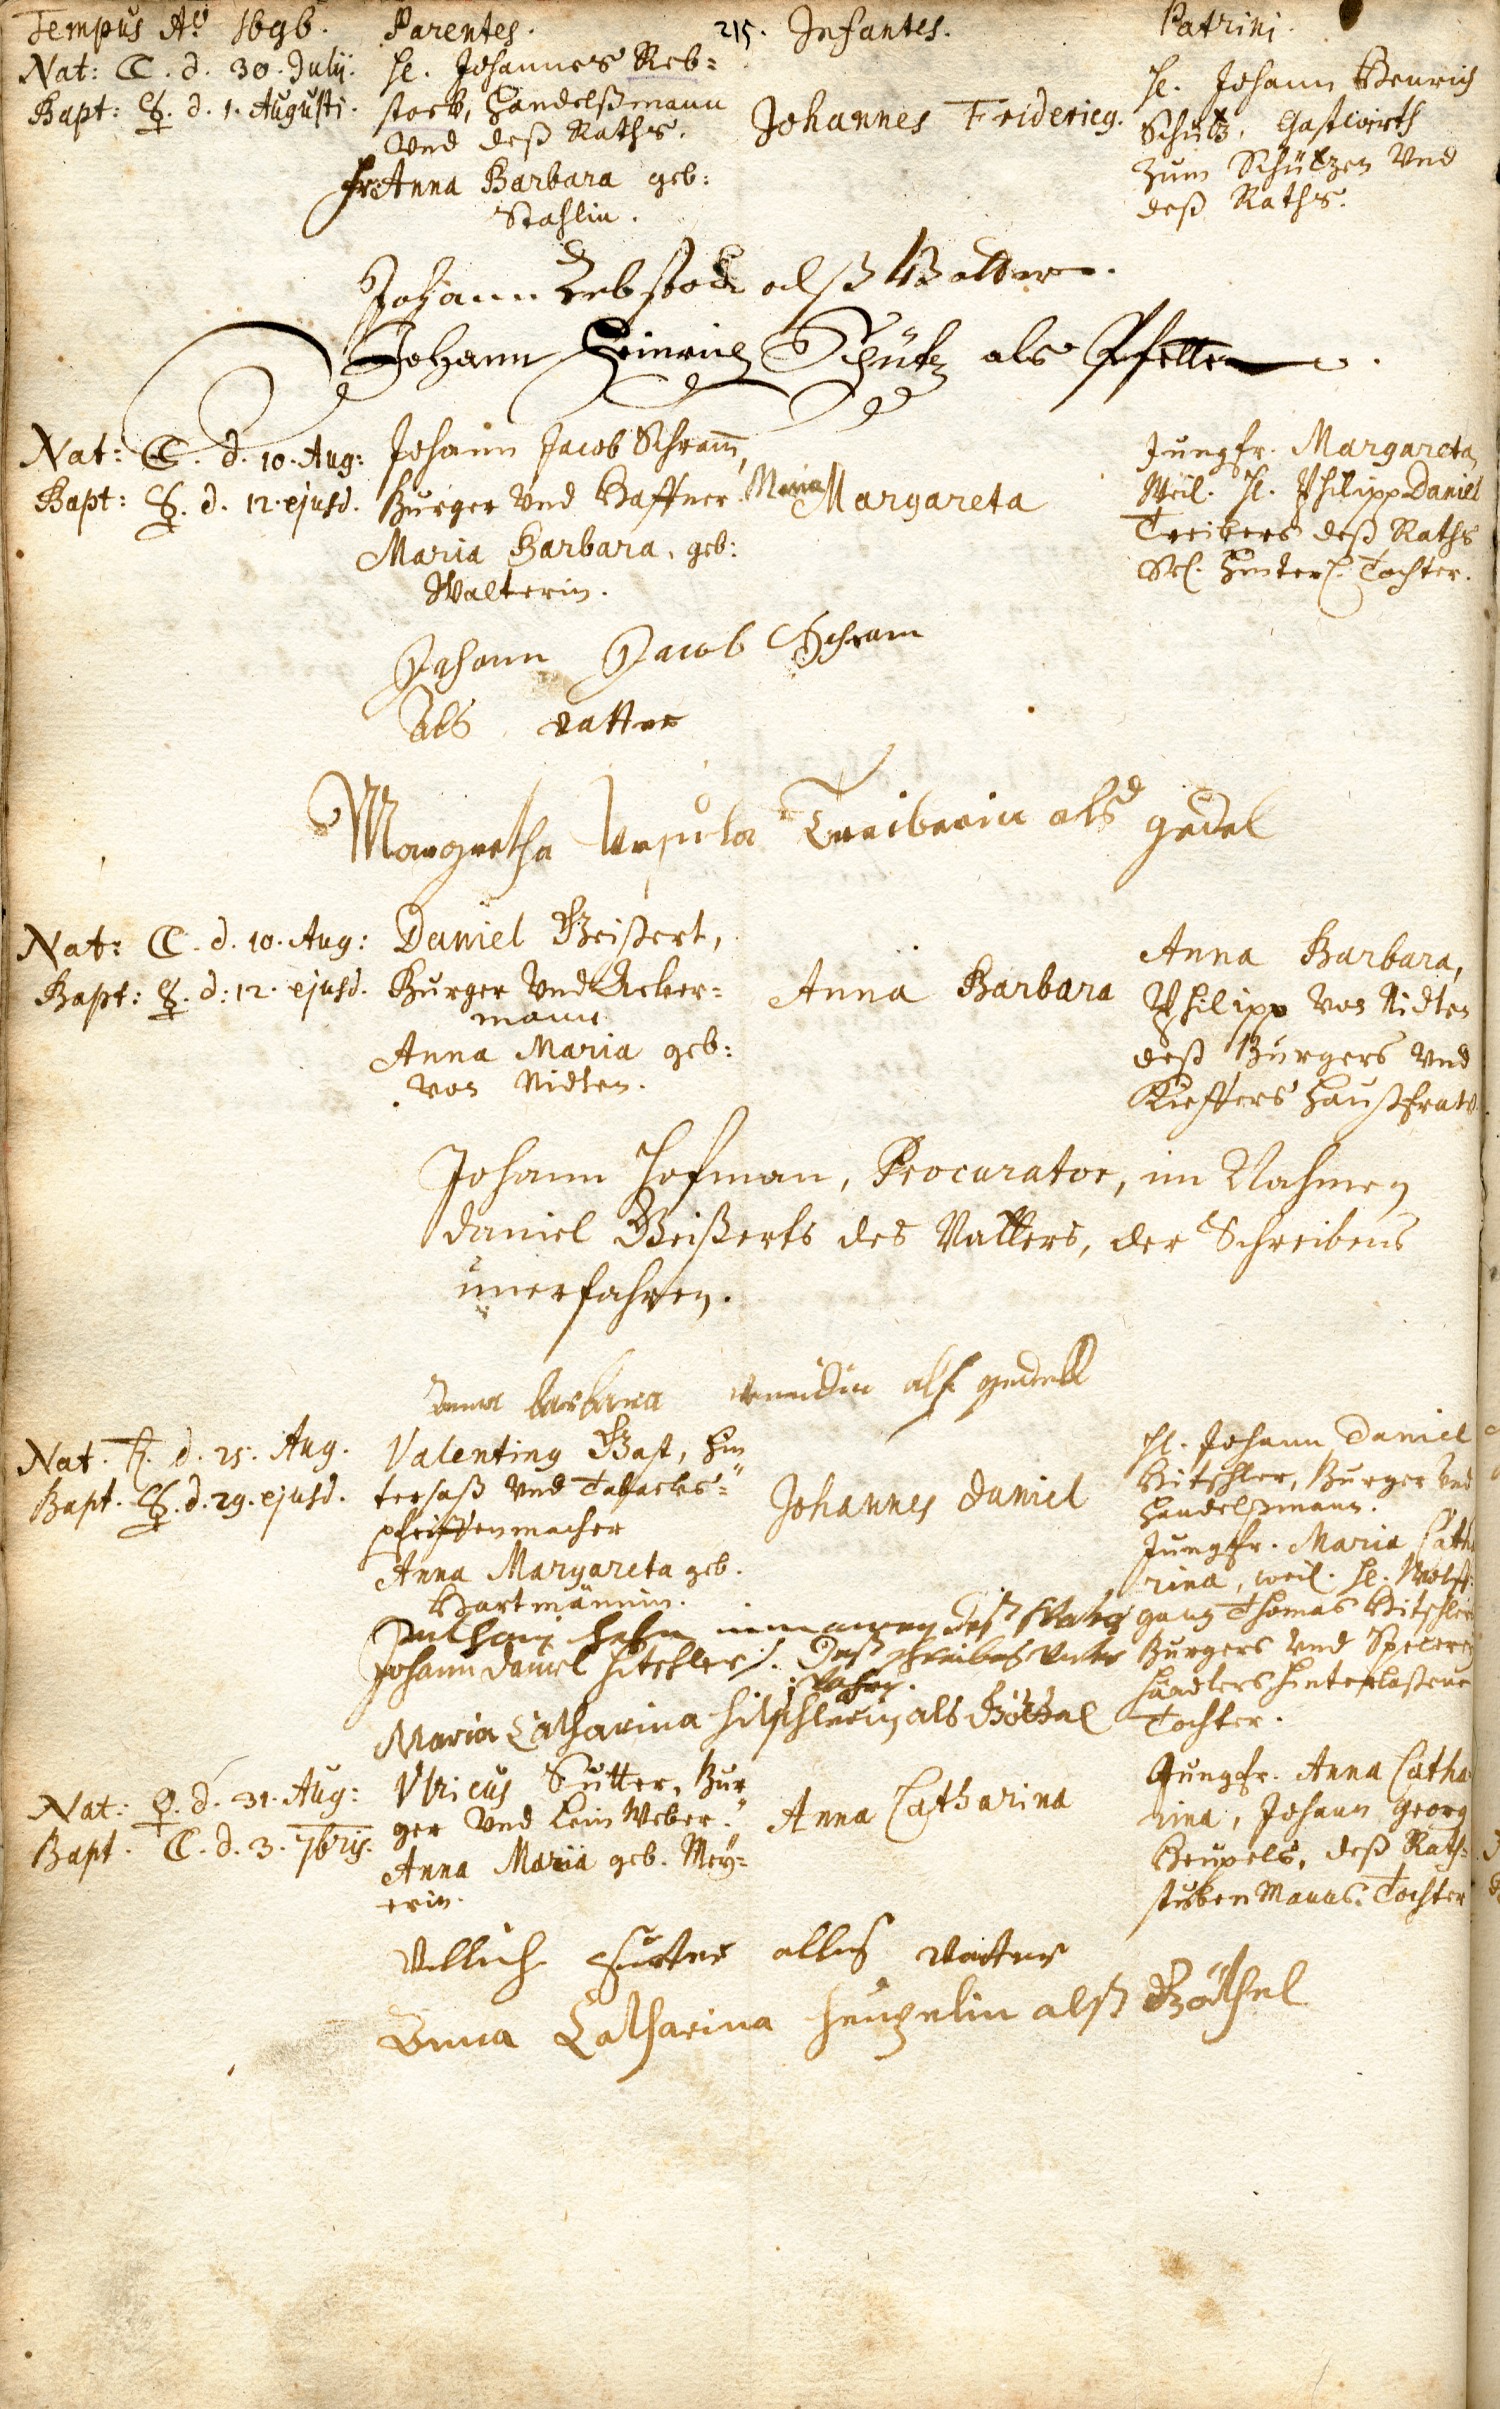 Tempus Aº 1696. Parentes. 215. Infantes. Patrini.
Nat: ☾. d. 30. Julij.
Bapt: ☿. d. 1. Augusti.
H. Johannes Reb=
stock, Handelßmann
Vnd deß Raths.
Fr. Anna Barbara geb:
Stahlin.
Johannes Fridericg.
H. Johann Henrich
Schütz, Gastwirth
zum Schützen Vnd
deß Raths.
Johann Rebstock alß Vatter.
Johann Heinrich Schütz als Pfetter.
Nat: ☾. d. 10. Aug:
Bapt: ☿. d. 12. ejusd.
Johann Jacob Schram̄,
Burger Vnd Haffner.
Maria Barbara, geb:
Walterin.
Maria Margareta
Jungfr. Margareta,
Weil. H. Philipp Daniel
Treibers deß Raths
Sel. Hinterl. Tochter.
Johann Jacob Schram
als vatter
Margretha Ursula Treiberin als gedel
Nat: ☾. d. 10. Aug:
Bapt: ☿. d: 12. ejusd.
Daniel Geißert,
Burger Vnd Acker=
mann
Anna Maria geb:
von Nidten.
Anna Barbara
Anna Barbara,
Philipp von Nidten
deß Burgers Vnd
Kieffers Haußfraw.
Johann Hofman, Procurator, im Nahmen
Daniel Geißerts des Vatters, der Schreibens
unerfahren.
Anna barbara alß gedell
Nat. ♄. d. 25. Aug.
Bapt. ☿. d. 29. ejusd.
Valenting Bast, Hin
tersaß Vnd Taback's=
pfeiffenmacher
Anna Margareta geb.
Hartmännin.
Johannes Daniel
H. Johann Daniel
Hitschler, Burger Vnd
Handelßmann.
Jungfr. Maria Cathe
rina, weil. H. Wolff=
gang Thomas Hitschlers
Burgers Vnd Specerey
händlers Hinterlaßene
Tochter.
deß
Johann Daniel Hitschler
Maria Catharina Hitschlerin als Göttel
Nat: ♀. d. 31. Aug:
Bapt. ☾. d. 3. 7bris.
Vlricus Sutter, Bur
ger Vnd Lein Weber.
Anna Maria geb. Mey=
erin.
Anna Catharina
Jungfr. Anna Catha
rina, Johann Georg
Heupels, deß Rath=
stuben Manns. Tochter
Vllrich Sutter allß Vatter
Anna Catharina Heupelin alß Göthel